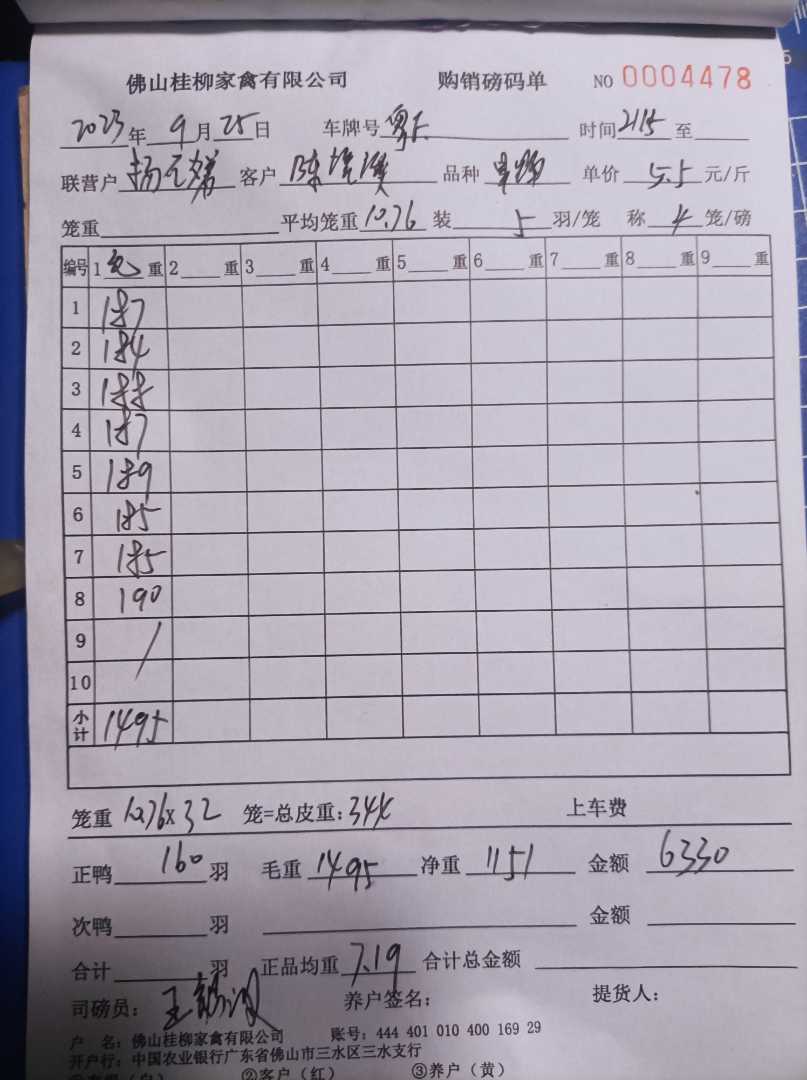 佛山桂柳家禽有限公司 购销磅码单 NO 0004478
2023年 9月 25日 车牌号 时间 2115 至
联营户 客户 品种 单价 5.5 元/斤
笼重 平均笼重 10.76 装 5 羽/笼 称 4 笼/磅
编号 1 重 2 重 3 重 4 重 5 重 6 重 7 重 8 重 9 重
1 187
2 184
3 188
4 187
5 189
6 185
7 185
8 190
9 /
10
小计 1495
笼重 10.76 x 32 笼=总皮重: 344 上车费
正鸭 160 羽 毛重 1495 净重 1151 金额 6330
次鸭 羽 金额
合计 羽 正品均重 7.19 合计总金额
司磅员: 养户签名: 提货人:
户 名: 佛山桂柳家禽有限公司 账号: 444 401 010 400 169 29
开户行: 中国农业银行广东省佛山市三水区三水支行
②客户(红) ③养户(黄)